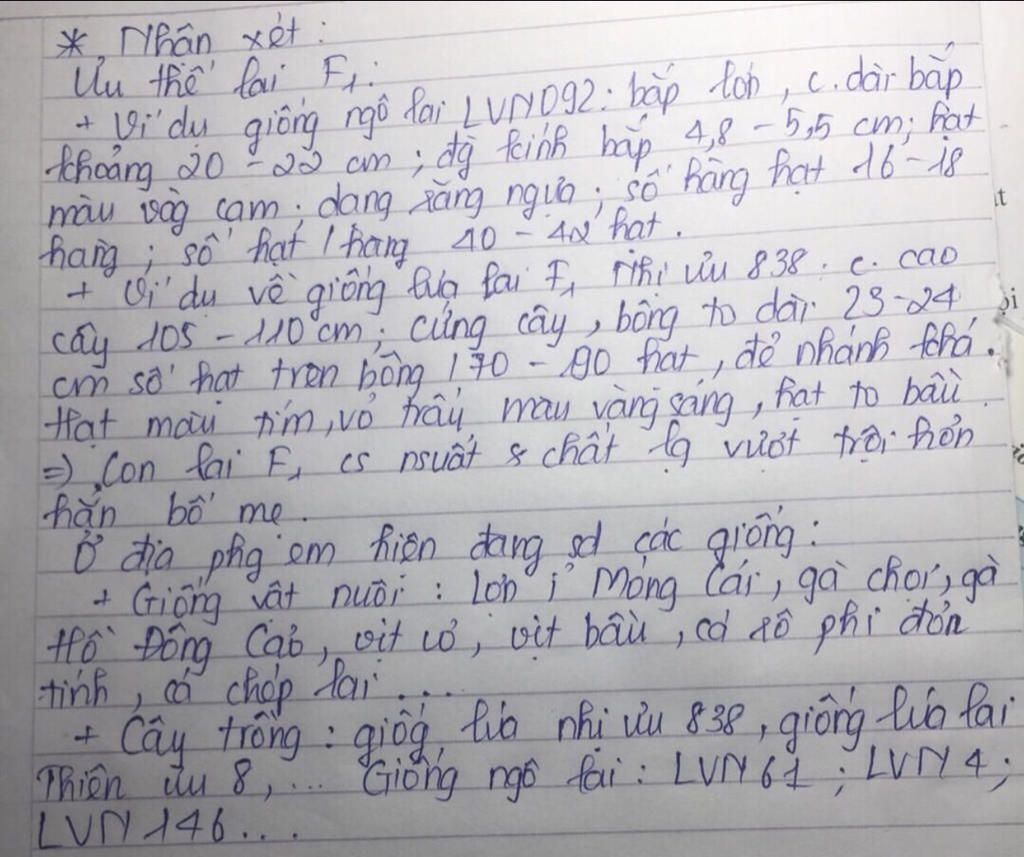 * Nhân xét:
Ưu thế lai F₁:
+ Ví dụ giống ngô lai LVN092: bắp lớn, c. dài bắp
khoảng 20 - 22 cm; đg kính bắp 4,8 - 5,5 cm; hạt
màu vàg cam; dạng răng ngựa; số hàng hạt 16 - 18
hàng; số hạt / hàng 40 - 42 hạt.
+ Ví dụ về giống lúa lai F₁ Nhị ưu 838: c. cao
cây 105 - 110 cm; cứng cây, bông to dài 23-24
cm số hạt trên bông 170 - 190 hạt, đẻ nhánh khá.
Hạt màu tím, vỏ trấu màu vàng sáng, hạt to bầu.
=> Con lai F₁ cs nsuất & chất lg vượt trội hơn
hẳn bố mẹ.
Ở địa phg em hiện đang sd các giống:
+ Giống vật nuôi: lợn ỉ Móng Cái, gà chọi, gà
Hồ Đông Cảo, vịt cỏ, vịt bầu, cá rô phi đơn
tính, cá chép lai...
+ Cây trồng: giốg lúa nhị ưu 838, giống lúa lai
Thiên ưu 8,... Giống ngô lai: LVN 61; LVN 4;
LVN 146....